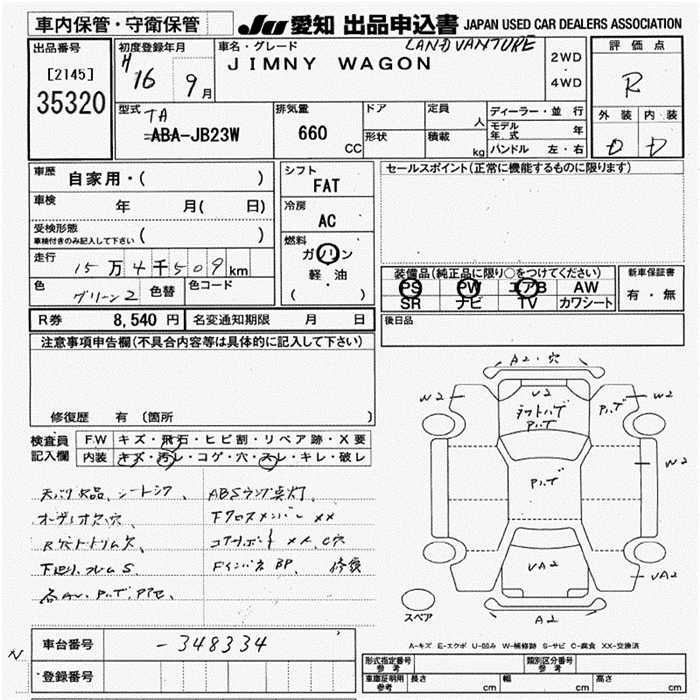 車内保管・守衛保管
JU 愛知 出品申込書 JAPAN USED CAR DEALERS ASSOCIATION
出品番号
[2145]
35320
初度登録年月
H16 9月
車名・グレード LAND VANTURE
JIMNY WAGON
2WD
・
4WD
評価点
R
外装 内装
D D
型式 TA
ABA-JB23W
排気量
660 CC
ドア
形状
定員 人
積載 kg
ディーラー・並 行
モデル年式 年
ハンドル 左・右
車歴 自家用・( )
車検 年 月( 日)
受検形態
車検付きのみ記入して下さい ( )
走行 15万4千509km
色 グリーン2 色替 色コード
シフト
FAT
冷房
AC
燃料
ガソリン
軽・油
( )
セールスポイント(正常に機能するものに限ります)
装備品(純正品に限り○をつけてください)
PS PW エアB AW
SR ナビ TV カワシート
新車保証書
有・無
R券 8,540 円 名変通知期限 月 日
後日品
注意事項申告欄(不具合内容等は具体的に記入して下さい)
修復歴 有 (箇所
検査員記入欄
F.W キズ・飛石・ヒビ割・リペア跡・X要
内装 キズ・汚レ・コゲ・穴・スレ・キレ・破レ
ABSランプ点灯、
オーディオ欠、穴
下クロスメンバー XX
XX、C穴
Fインパネ BP、 修復
A2・穴
W2
V2
W2
W2
VA2
VA2
A2
スペア
A-キズ E-エクボ U-凹み W-補修跡 S-サビ C-腐食 XX-交換済
車台番号 -348334
登録番号
N
形式指定番号
参考
類別区分番号
参考
車庫証明用
参考
長さ cm 幅 cm 高さ cm